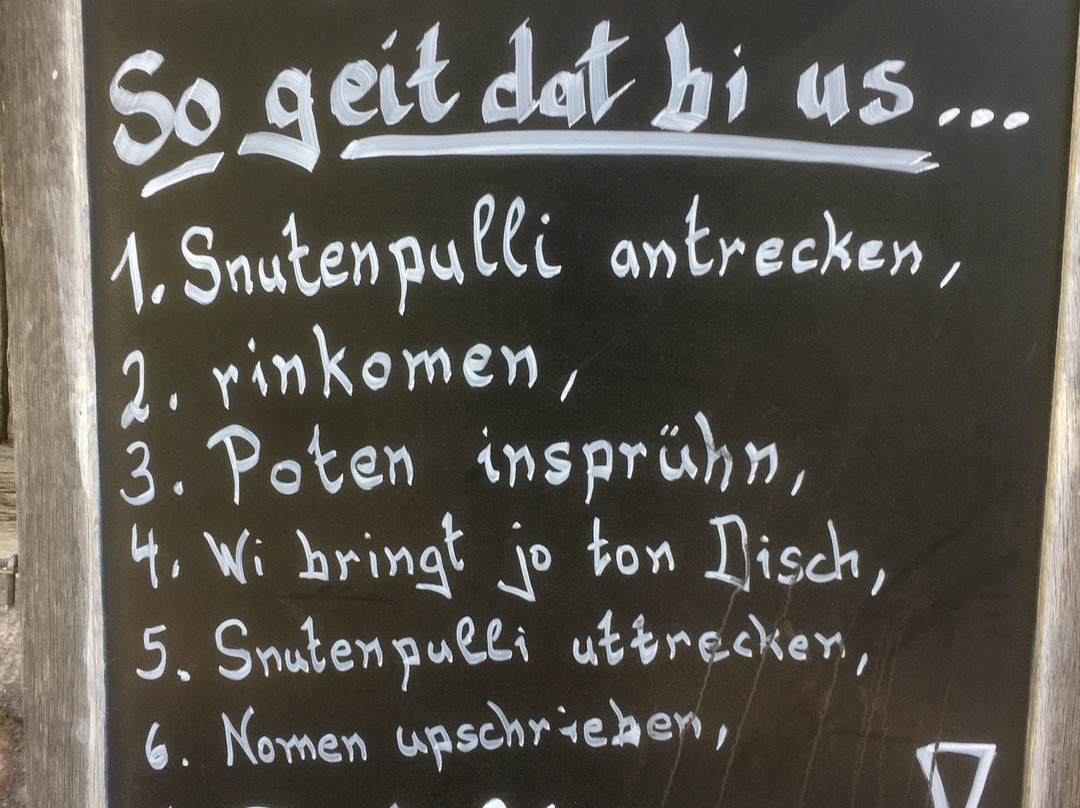 So geit dat bi us...
1. Snutenpulli antrecken,
2. rinkomen,
3. Poten insprühn,
4. Wi bringt jo ton Disch,
5. Snutenpulli uttrecken,
6. Nomen upschrieben,